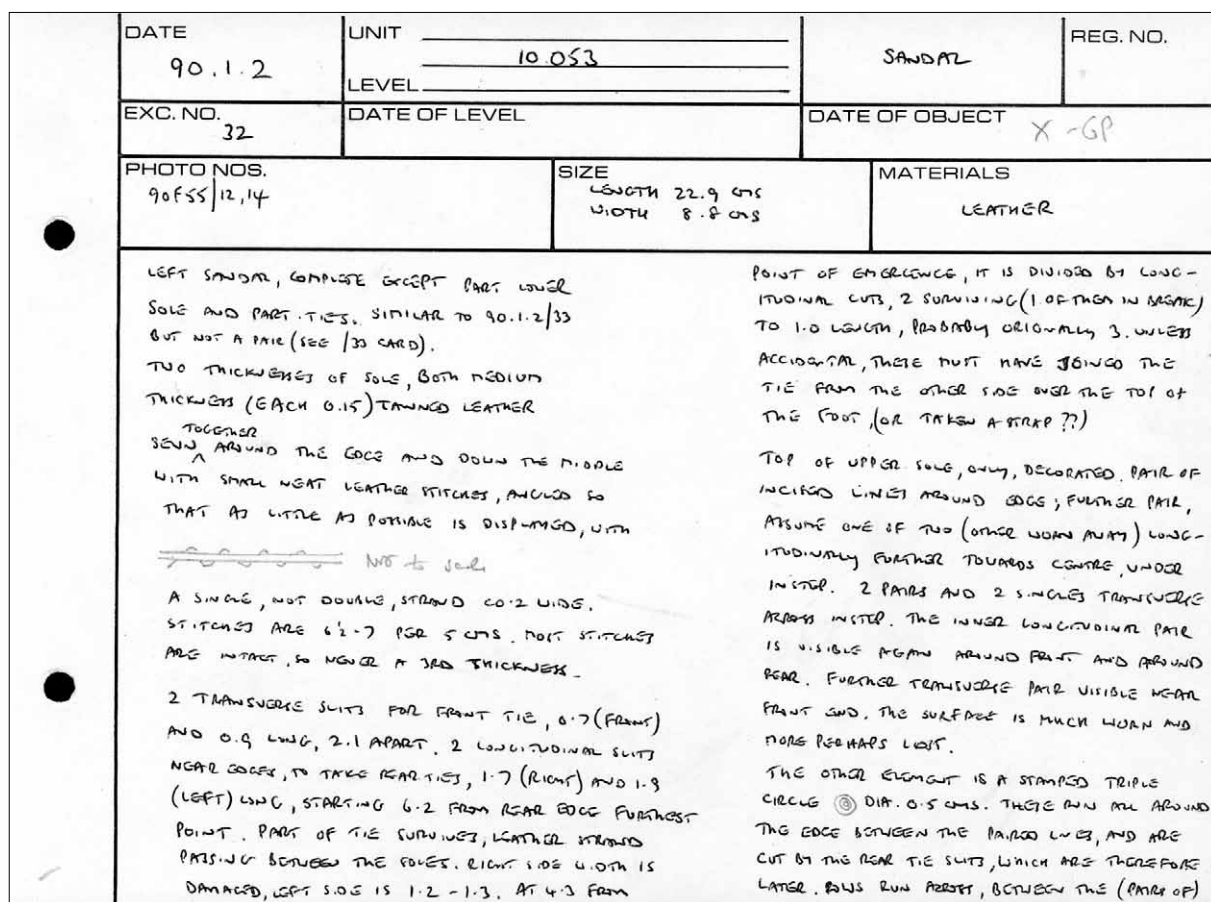 DATE
90.1.2
UNIT
10.053
LEVEL
SANDAL
REG. NO.
EXC. NO.
32
DATE OF LEVEL
DATE OF OBJECT X-GP
PHOTO NOS.
90F55/12,14
SIZE
LENGTH 22.9 CMS
WIDTH 8.8 CMS
MATERIALS
LEATHER
LEFT SANDAL, COMPLETE EXCEPT PART LOWER
SOLE AND PART TIES. SIMILAR TO 90.1.2/33
BUT NOT A PAIR (SEE /33 CARD).
TWO THICKNESSES OF SOLE, BOTH MEDIUM
THICKNESS (EACH 0.15) TANNED LEATHER
TOGETHER
SEWN ^ AROUND THE EDGE AND DOWN THE MIDDLE
WITH SMALL NEAT LEATHER STITCHES, ANGLED SO
THAT AS LITTLE AS POSSIBLE IS DISPLAYED, WITH
Not to scale
A SINGLE, NOT DOUBLE, STRAND C0.2 WIDE.
STITCHES ARE 6½-7 PER 5 CMS. MOST STITCHES
ARE INTACT, SO NEVER A 3RD THICKNESS.
2 TRANSVERSE SLITS FOR FRONT TIE, 0.7 (FRONT)
AND 0.9 LONG, 2.1 APART. 2 LONGITUDINAL SLITS
NEAR EDGES, TO TAKE REAR TIES, 1.7 (RIGHT) AND 1.9
(LEFT) LONG, STARTING 6.2 FROM REAR EDGE FURTHEST
POINT. PART OF TIE SURVIVES, LEATHER STRAND
PASSING BETWEEN THE SOLES. RIGHT SIDE WIDTH IS
DAMAGED, LEFT SIDE IS 1.2 - 1.3. AT 4.3 FROM
POINT OF EMERGENCE, IT IS DIVIDED BY LONG-
ITUDINAL CUTS, 2 SURVIVING (1 OF THEM IN BREAK)
TO 1.0 LENGTH, PROBABLY ORIGINALLY 3. UNLESS
ACCIDENTAL, THESE MUST HAVE JOINED THE
TIE FROM THE OTHER SIDE OVER THE TOP OF
THE FOOT, (OR TAKEN A STRAP ??)
TOP OF UPPER SOLE, ONLY, DECORATED. PAIR OF
INCISED LINES AROUND EDGE; FURTHER PAIR,
ASSUME ONE OF TWO (OTHER WORN AWAY) LONG-
ITUDINALLY FURTHER TOWARDS CENTRE, UNDER
INSTEP. 2 PAIRS AND 2 SINGLES TRANSVERSE
ACROSS INSTEP. THE INNER LONGITUDINAL PAIR
IS VISIBLE AGAIN AROUND FRONT AND AROUND
REAR. FURTHER TRANSVERSE PAIR VISIBLE NEAR
FRONT END. THE SURFACE IS MUCH WORN AND
MORE PERHAPS LOST.
THE OTHER ELEMENT IS A STAMPED TRIPLE
CIRCLE DIA. 0.5 CMS. THESE RUN ALL AROUND
THE EDGE BETWEEN THE PAIRED LINES, AND ARE
CUT BY THE REAR TIE SLITS, WHICH ARE THEREFORE
LATER. ROWS RUN ACROSS, BETWEEN THE (PAIRS OF)